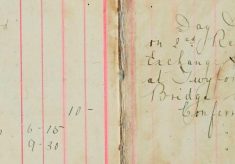 10 -
6-15
9-30
Day D
on 2nd Re
Exchange
at Twyfor
Bridge
Confirm